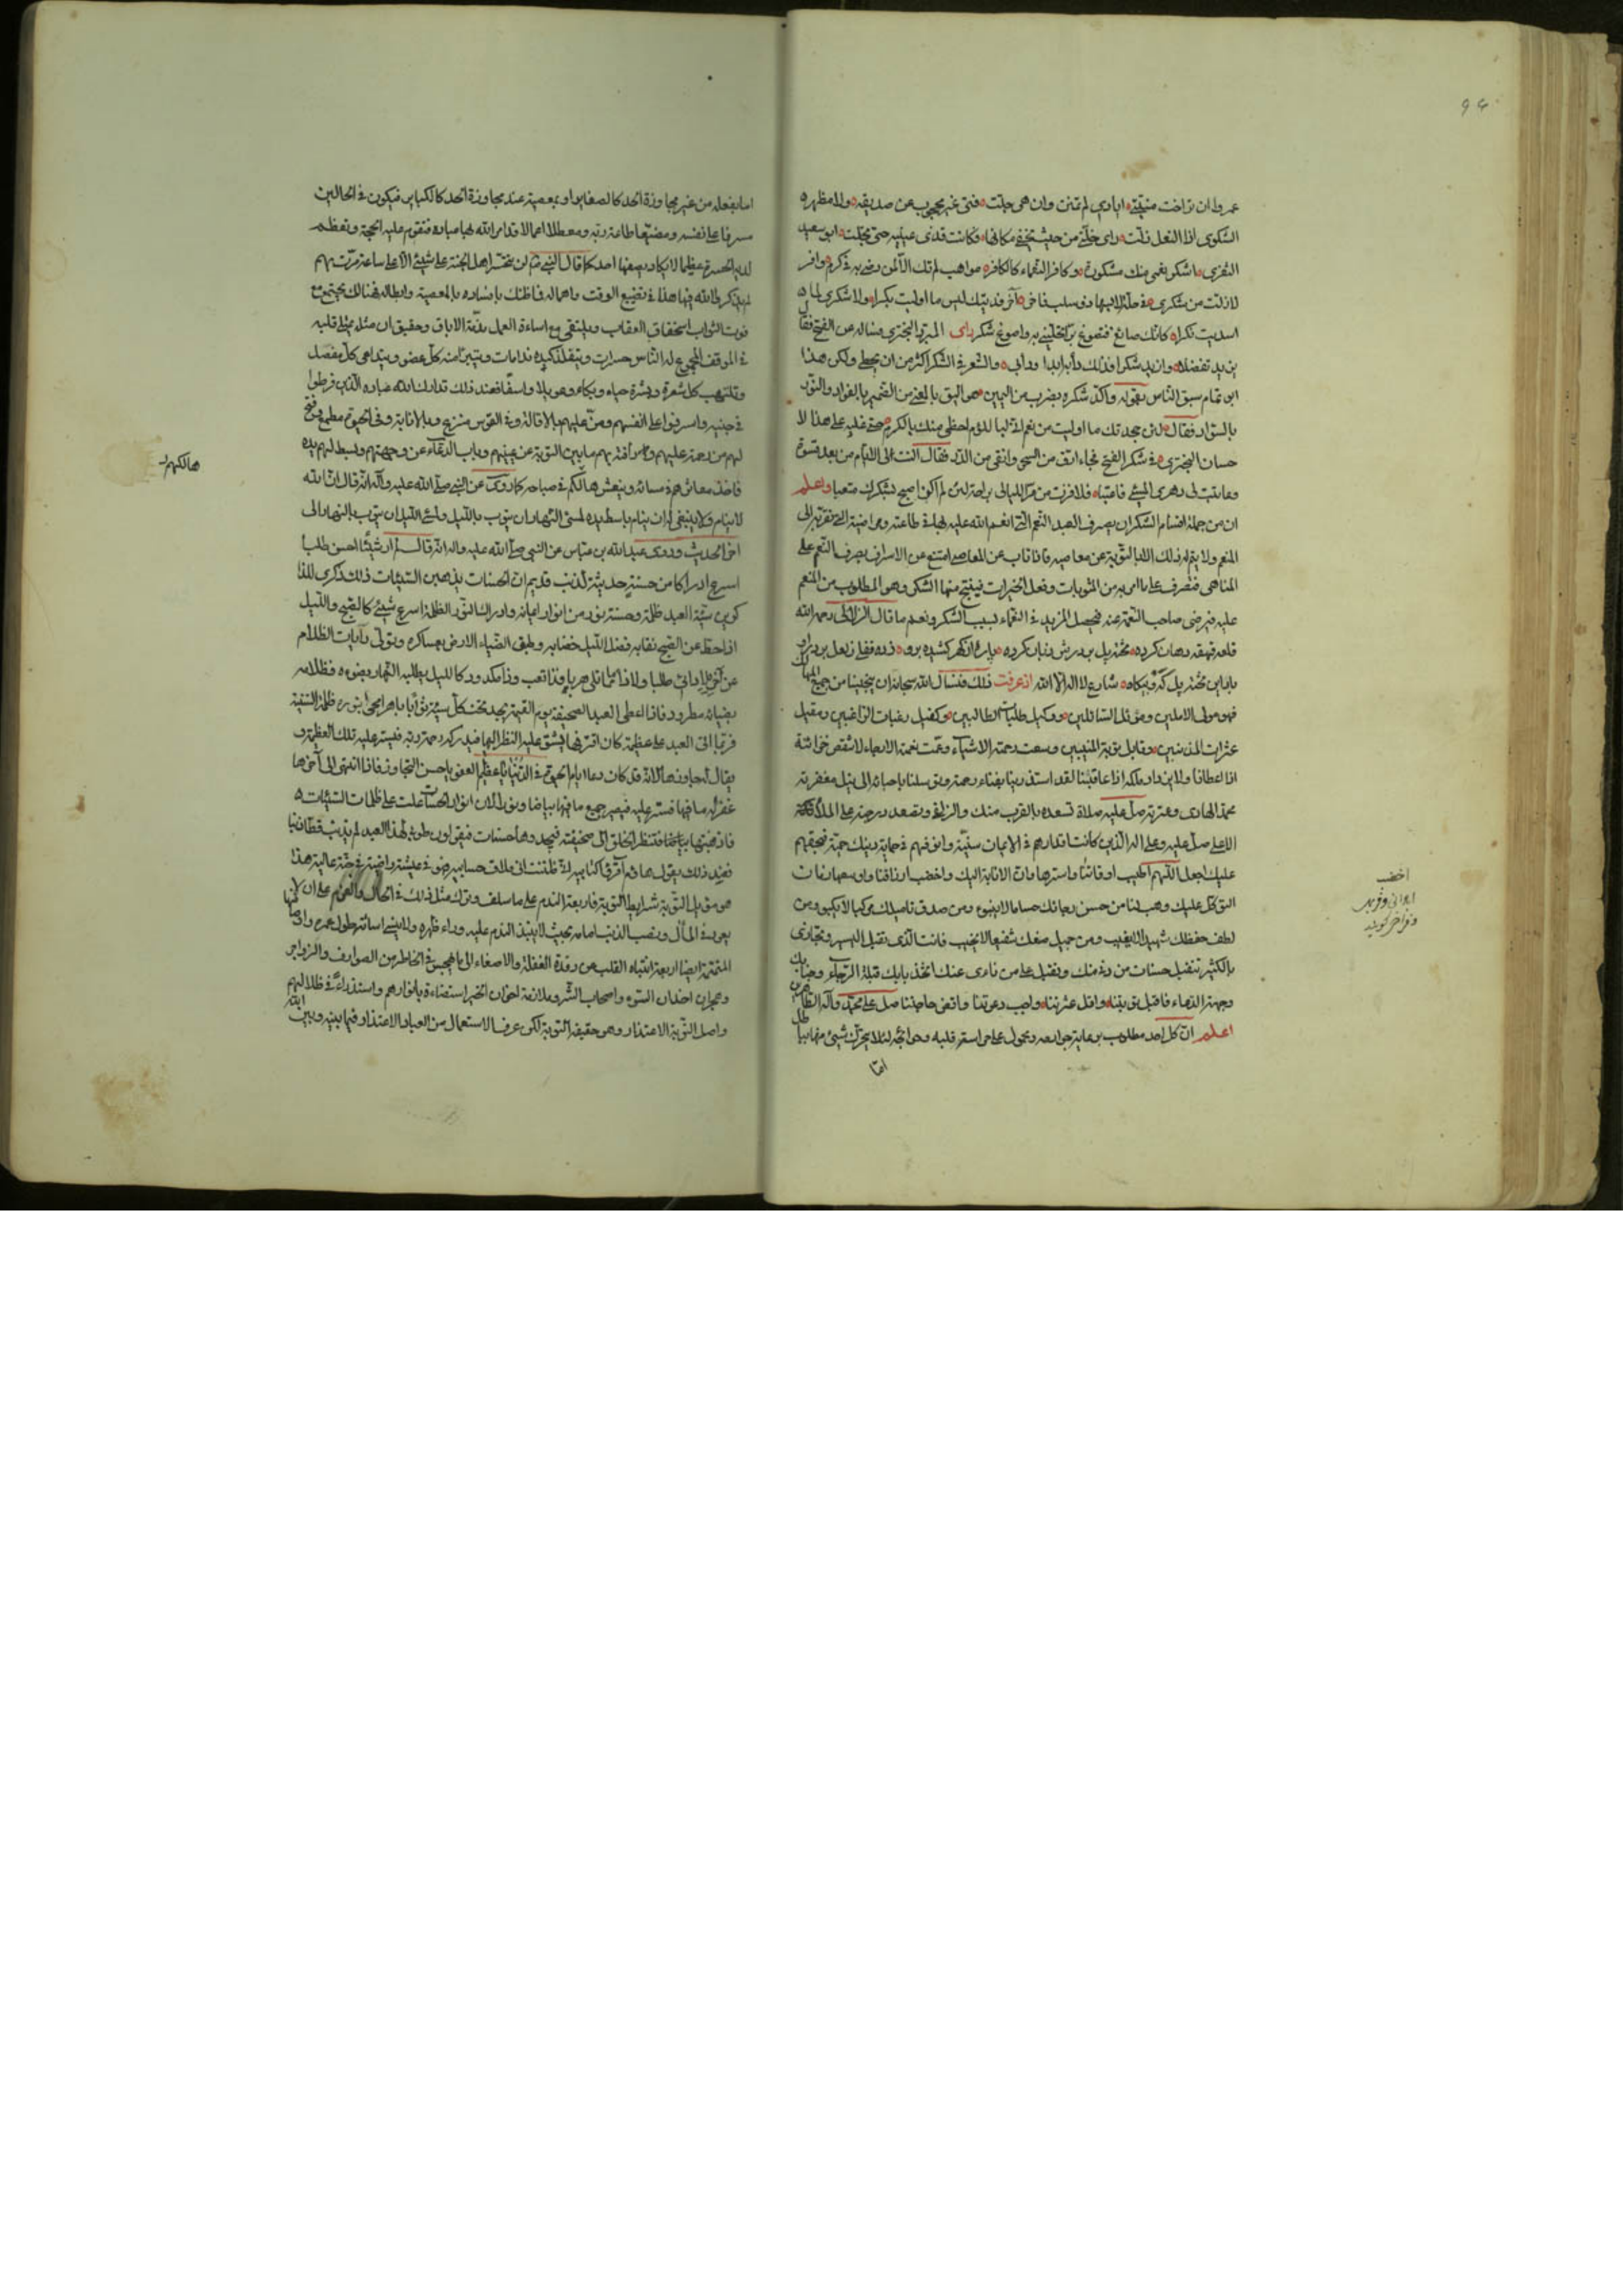 عمروا ان تراخت منيتي ايادي لم تمنن وان هي جلت فتى غير محجوب عن صديقه ولا مظهر
الشكوى اذا النعل زلت راى خلتي من حيث يخفى مكانها فكانت قذى عينيه حتى تجلت ابو سعيد
الثغرى اشكو نعمى منك مشكورة وكافر النعماء كالكافر مواهب لم تك الا لمن في كرم وافر
لا زلت من شكرى في حلة لابسها ذو سلب فاخر آخر فديتك ليس ما اوليت بكرا ولا شكرى لما
اسديت نكرا كانك صائغ فتصوغ برا تحليني به واصوغ شكر راى المبرد البحترى فساله عن الفتح فقال
يزيد تفضلا وازيد شكرا وذلك دأبه ابدا ودأبى والشعر في الشكر اكثر من ان يحيط ولكن هذا
ابو تمام سبق الناس بقوله واكد شكره بضرب من اليمين هو اليق بالمعنى من الضمير بالفؤاد والنور
بالسواد فقال لئن جحدتك ما اوليت من نعم انى لفى اللؤم احظى منك بالكرم حتى غلبه على هذا لا
حسان البحترى في شكر الفتح فجاء ارق من السحر وانقى من الدر فقال النت لى الايام من بعد قسوة
وعاتبت لى دهرى المسئ فاعتبا فلا فزت من مر الليالى براحة لئن لم اكن اصبح بشكرك متعبا واعلم
ان من جملة اقسام الشكر ان يصرف العبد النعم التى انعم الله عليه بها في طاعته ومراضيه التى تقربه الى
المنعم ولا يتم له ذلك الا بالتوبة عن معاصيه فاذا تاب عن المعاصى امتنع عن الاسراف بصرف النعم على
المناهى فصرف على ما امر به من المثوبات وفعل الخيرات فينتج منها الشكر وهو المطلوب من المنعم
عليه فيرضى صاحب النعمة عنه فيحصل المزيد في النعماء بسبب الشكر ونعم ما قال الزلالى رحمه الله
شارع لا اله الا الله اذ عرفت ذلك فنسال الله سبحانه ان ينجينا من جميع المهالك
فهو مولى الآملين وموئل السائلين ووكيل طلبات الطالبين وكفيل رغبات الراغبين ومقيل
عثرات المذنبين وقابل توبة المنيبين وسعت رحمته الاشياء وعمت نعمته الارجاء لا تنقص خزائنه
اذا اعطانا ولا يزداد ملكه اذا عاقبنا لقد استذرينا بفناء رحمته وتوسلنا باحبائه الى نيل مغفرته
محمد الهادى وعترته صل عليه صلاة تسعده بالقرب منك والزلفى وتصعد درجته على الملائكة
الاعلى صل عليه وعلى اله الذين كانت اقدارهم في الايمان سنية وانوفهم في حماية دينك حمية فبحقهم
عليك اجعل اللهم اطيب اوقاتنا واسترها وقت الانابة اليك واخصب ارزاقنا واوسعها رزقات
التوكل عليك وهب لنا من حسن رجائك حساما لا ينبو ومن صدق تاميلك مركبا لا يكبو ومن
لطف حفظك شهيدا لا يغيب ومن جميل صفحك شفيعا لا يخيب فانت الذى تقبل اليسير وتجازى
بالكثير تتفضل حسنات من دنا منك وتقبل على من نادى عنك اتخذ بابك قبلة الرجاء وجنابك
وجهة الدعاء فاقبل توبتنا واقل عثرتنا واجب دعوتنا واقض حاجتنا صل على محمد وآله الطاهرين
اعلم ان كل احد مطلوب برعاية جوارحه ومحمول على حراسة قلبه وجوانحه لئلا يتحرك شئ منها باطلا
اما
اخصب
ايرانى وفريد
وفراخر كويند
اما بفعله من غير مجاوزة الحد كالصغاير او بمعصية عند مجاوزة الحد كالكباير فيكون في الحالين
مسرفا على نفسه ومضيعا طاعة ربه ومعطلا اعمالا قد امر الله بها عباده فتقوم عليه الحجة وتعظم
لديه الحسرة عظيما لا يكاد يصفها احد كما قال النبي لن يتحسر اهل الجنة على شئ الا على ساعة مرت بهم
لم يذكروا الله فيها هذا في تضييع الوقت واهماله فما ظنك بافساده بالمعصية وابطاله فهنالك يجتمع مع
فوت الثواب استحقاق العقاب ويلتقى مع اساءة العمل مذمة الاباق وحقيق ان مثله يمتلى قلبه
في الموقف المجموع له الناس حسرات ويتفلذ كبده ندامات ويتبرأ منه كل عضو ويتداعى كل مفصل
وتلتهب كل شعرة وبشرة حياء وبكاء وهو بلاء واسفا فعند ذلك تدارك الله عباده الذين فرطوا
في جنبه واسرفوا على انفسهم ومن عليهم بالاقالة وفي القوس منزع وبالانابة وفي الحيوة مطمع وفتح
لهم من رحمة عليهم ورأفة بهم ما بين التوبة عن عينهم وباب الدعاء عن وجهتهم وبسط لهم يده
فاخذ معاشرهم في مسائه وينعش هالكم في صباحه كما روى عن النبي صلى الله عليه وآله انه قال ان الله
لا ينام ولا ينبغى له ان ينام باسط يده لمسئ النهار ان يتوب بالليل ولمسئ الليل ان يتوب بالنهار الى
اخر الحديث وروى عبد الله بن عباس عن النبي صلى الله عليه واله انه قال لم ار شيئا احسن طلبا
اسرع ادراكا من حسنة حديثة لذنب قديم ان الحسنات يذهبن السيئات ذلك ذكرى للذا
كرين سيئة العبد ظلمة وحسنة نور من انوار ايمانه وادراك النور الظلمة اسرع شئ كالصبح والليل
اذا حط عن الصبح نقابه فضل الليل خضابه وطبق الضياء الارض بعساكره وتولى رايات الظلام
بضيائه مطرود فاذا اعطى العبد الصحيفة يوم القيمة يجد تحت كل سيئة ثوابا باهرا يمحى بنوره ظلمة السيئة
فربما اتى العبد على عظيمة كان اقترفها يشق عليه النظر اليها فيدركه رحمة ربه فيستر عليه تلك العظيمة و
يقال له جاوزها لانه قد كان دعا ايام الحيوة في الدنيا يا عظيم العفو يا حسن التجاوز فاذا انتهى الى آخرها
غفر له ما فيها فستر عليه فيصير جميع ما فيها بياضا ونورا لان انوار الحسنات علت على ظلمات السيئات
فاذهبتها بياضا فتنظر الخلق الى صحيفته فيجدوها حسنات فيقولون طوبى لهذا العبد لم يذنب قط ذنبا
فعند ذلك يقول هاؤم اقرؤا كتابيه انى ظننت انى ملاق حسابيه فهو في عيشة راضية في جنة عالية هذا
هو مقبل التوبة شرايط التوبة فاربعة الندم على ما سلف وترك مثل ذلك في الحال والعزم على ان لا
يعود في المآل ونصب الذنب امامه بحيث لا ينبذ الندم عليه وراء ظهره ولا ينسى اسائته طول عمره واركانها
المتممة ايضا اربعة انتباه القلب من رقدة الغفلة والاصغاء الى ما يهجس في الخاطر من الصوارف والزواجر
وهجران اخدان السوء واصحاب الشر وملازمة اخوان الخير استضاءة بانوارهم واستذراء في ظلالهم
واصل التوبة الاعتذار وهو حقيقة التوبة لكن عرف الاستعمال من العباد الاعتذار فيما بينه وبين الله
هالكهم